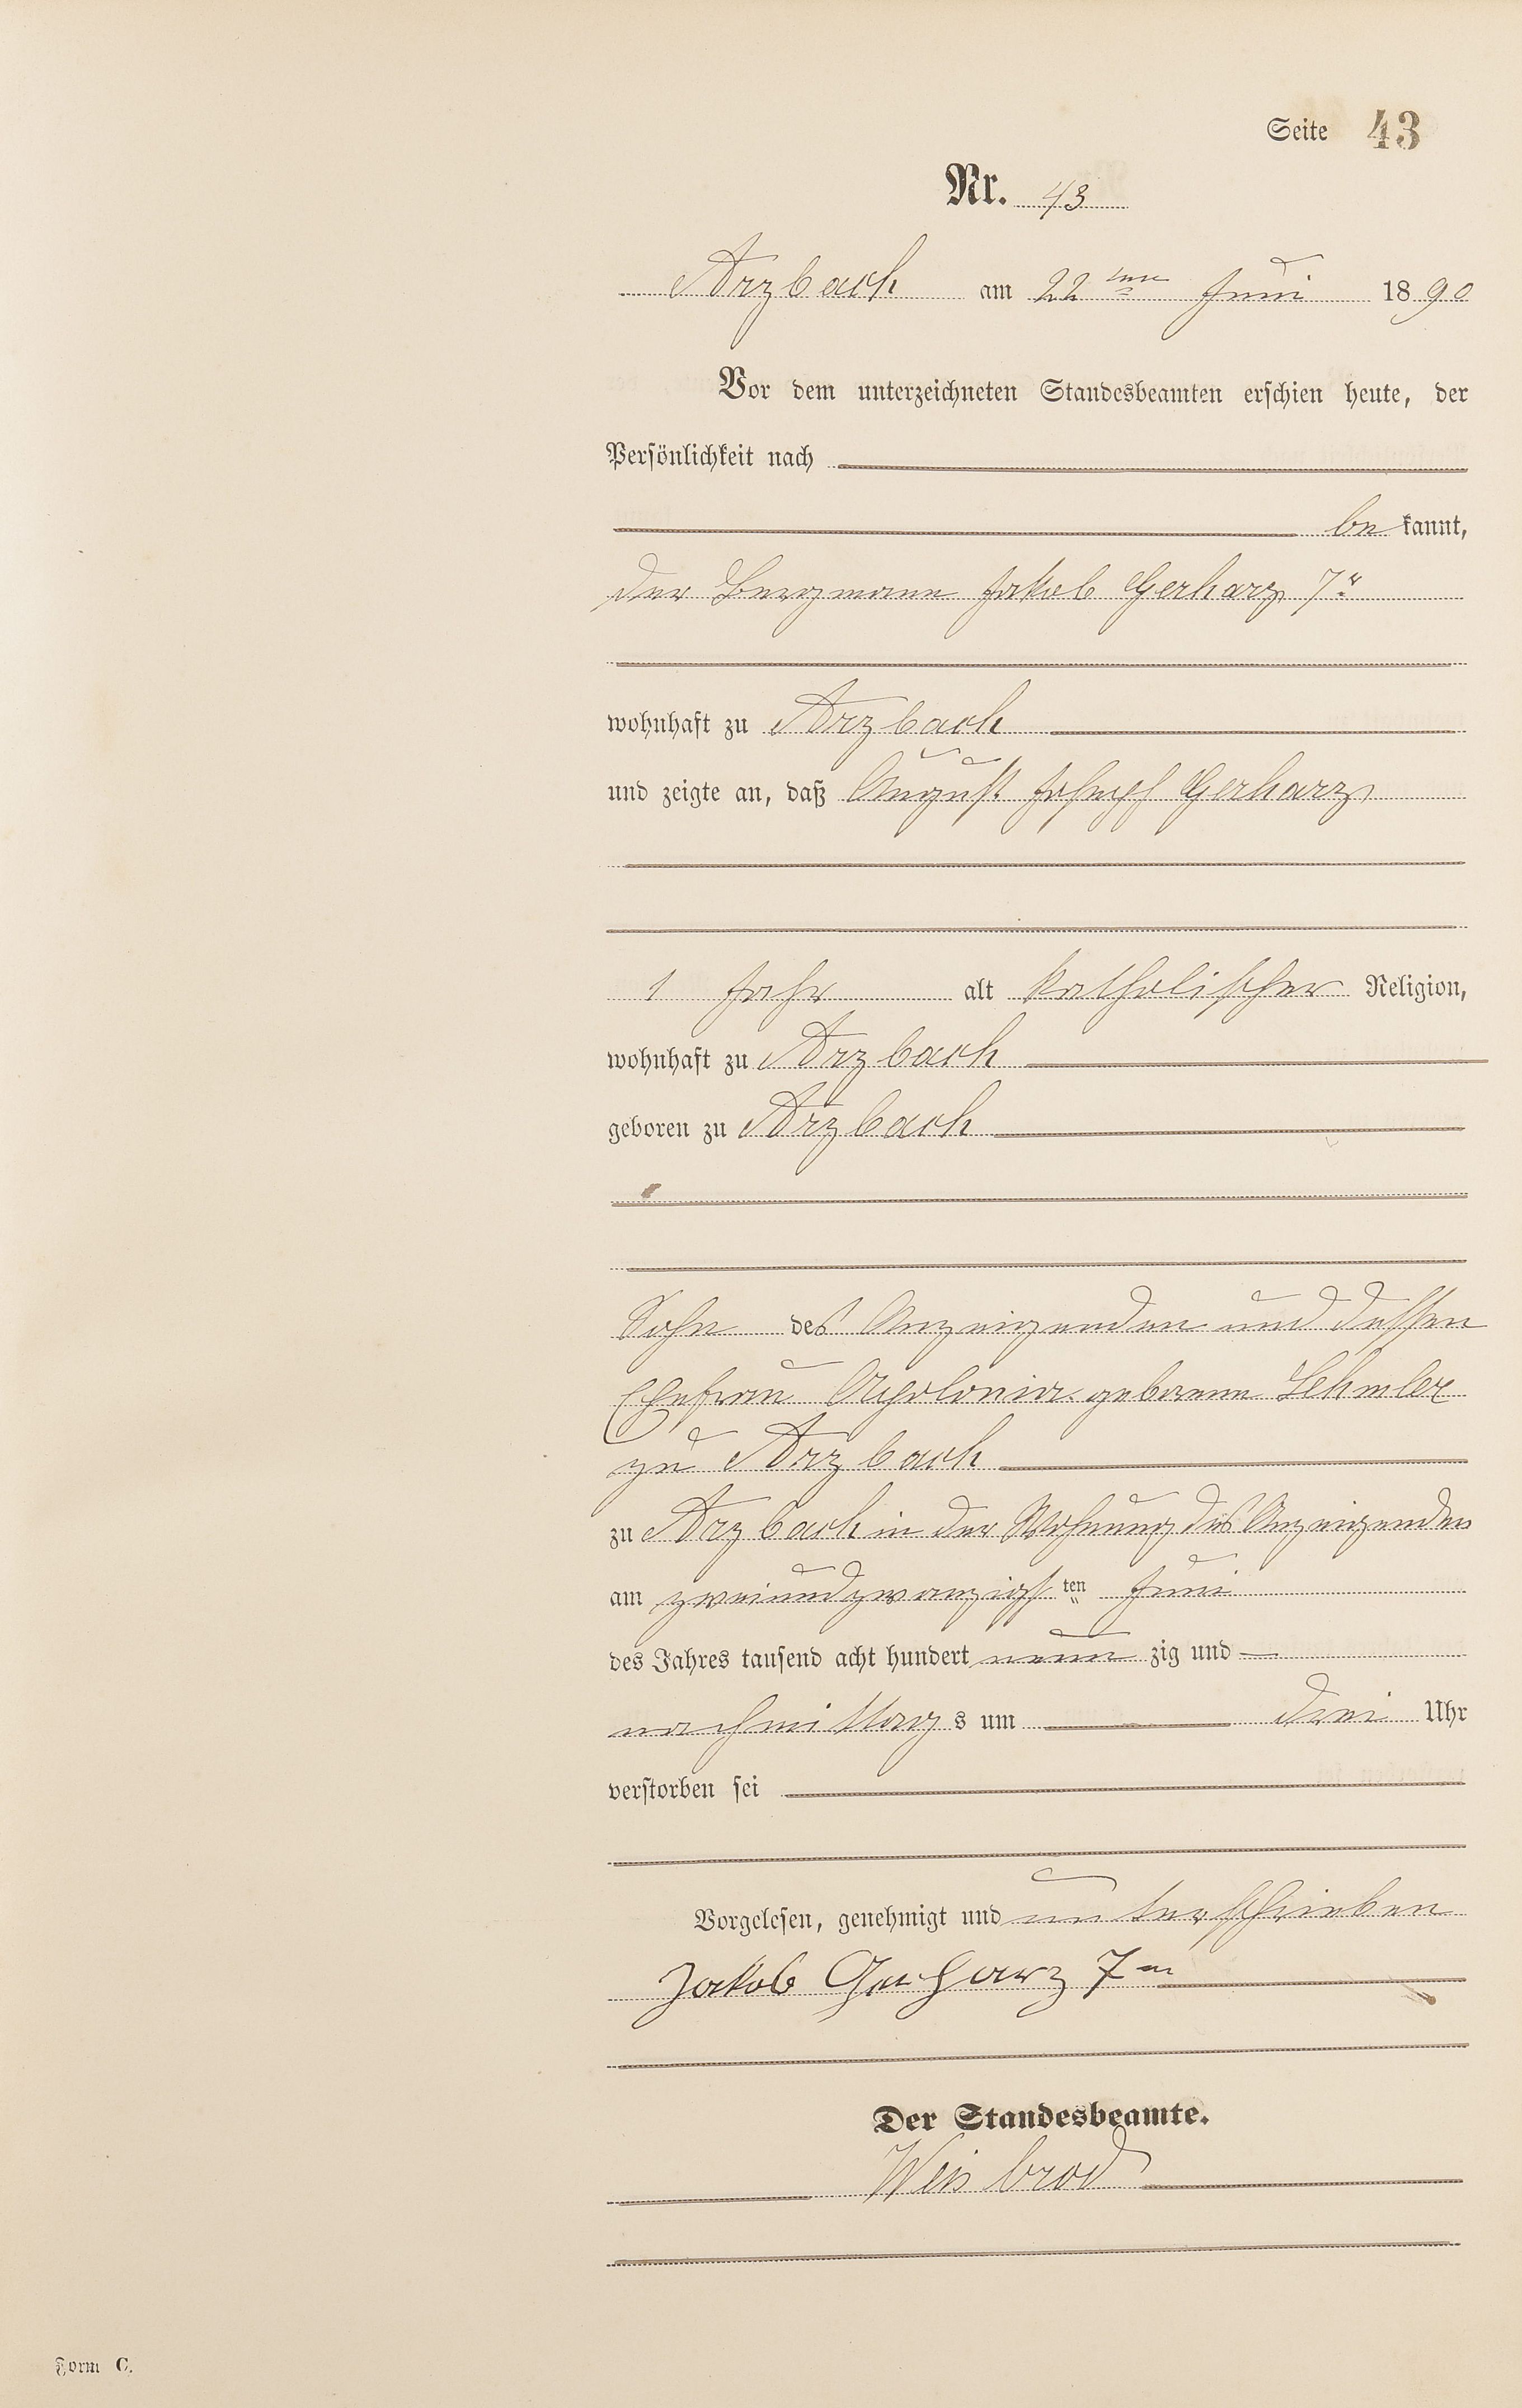 Seite 43
Nr. 43
Arzbach am 22ten Juni 1890
Vor dem unterzeichneten Standesbeamten erschien heute, der
Persönlichkeit nach
be kannt,
der Bergmann Jakob Gerharz 7r
wohnhaft zu Arzbach
und zeigte an, daß August Joseph Gerharz
1 Jahr alt katholischer Religion,
wohnhaft zu Arzbach
geboren zu Arzbach
Sohn des Anzeigenden und dessen
Ehefrau Apolonia geborene Lehmler
zu Arzbach
zu Arzbach in der Wohnung des Anzeigenden
am zweiundzwanzigsten Juni
des Jahres tausend acht hundert neun zig und
nachmittags um drei Uhr
verstorben sei
Vorgelesen, genehmigt und unterschrieben
Jakob Gerharz 7
Der Standesbeamte.
Weisbrod
Form C.